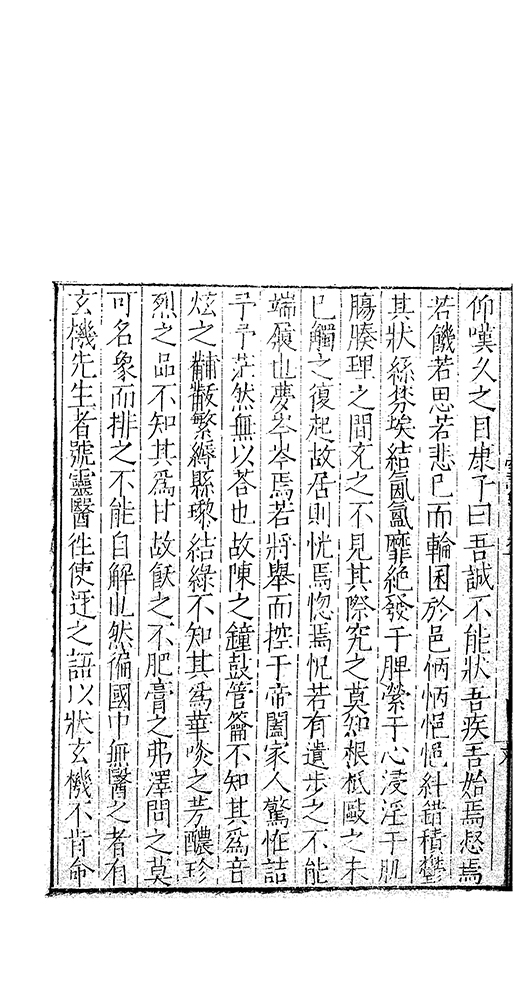 仰嘆久之目康予曰吾誠不能狀吾疾吾始焉怒焉
若饑若思若悲已而輪囷於邑怲怲悒悒糾錯積鬱
其狀絲棼埃結氤氳靡絕發于脾縈于心浸淫于肌
腸腠理之間充之不見其際究之莫知根柢毆之未
已觸之復起故居則恍焉惚焉怳若有遺步之不能
端履也夢岑岑焉若將舉而控于帝閽家人驚恠詰
予予茫然無以荅也故陳之鐘鼓管籥不知其爲音
炫之黼黻繁縟縣瓈結綠不知其爲華啖之芳醲珍
烈之品不知其爲甘故飫之不肥膏之弗澤問之莫
可名象而排之不能自解也然徧國中無醫之者有
玄機先生者號靈醫徃使迓之語以狀玄機不肯命